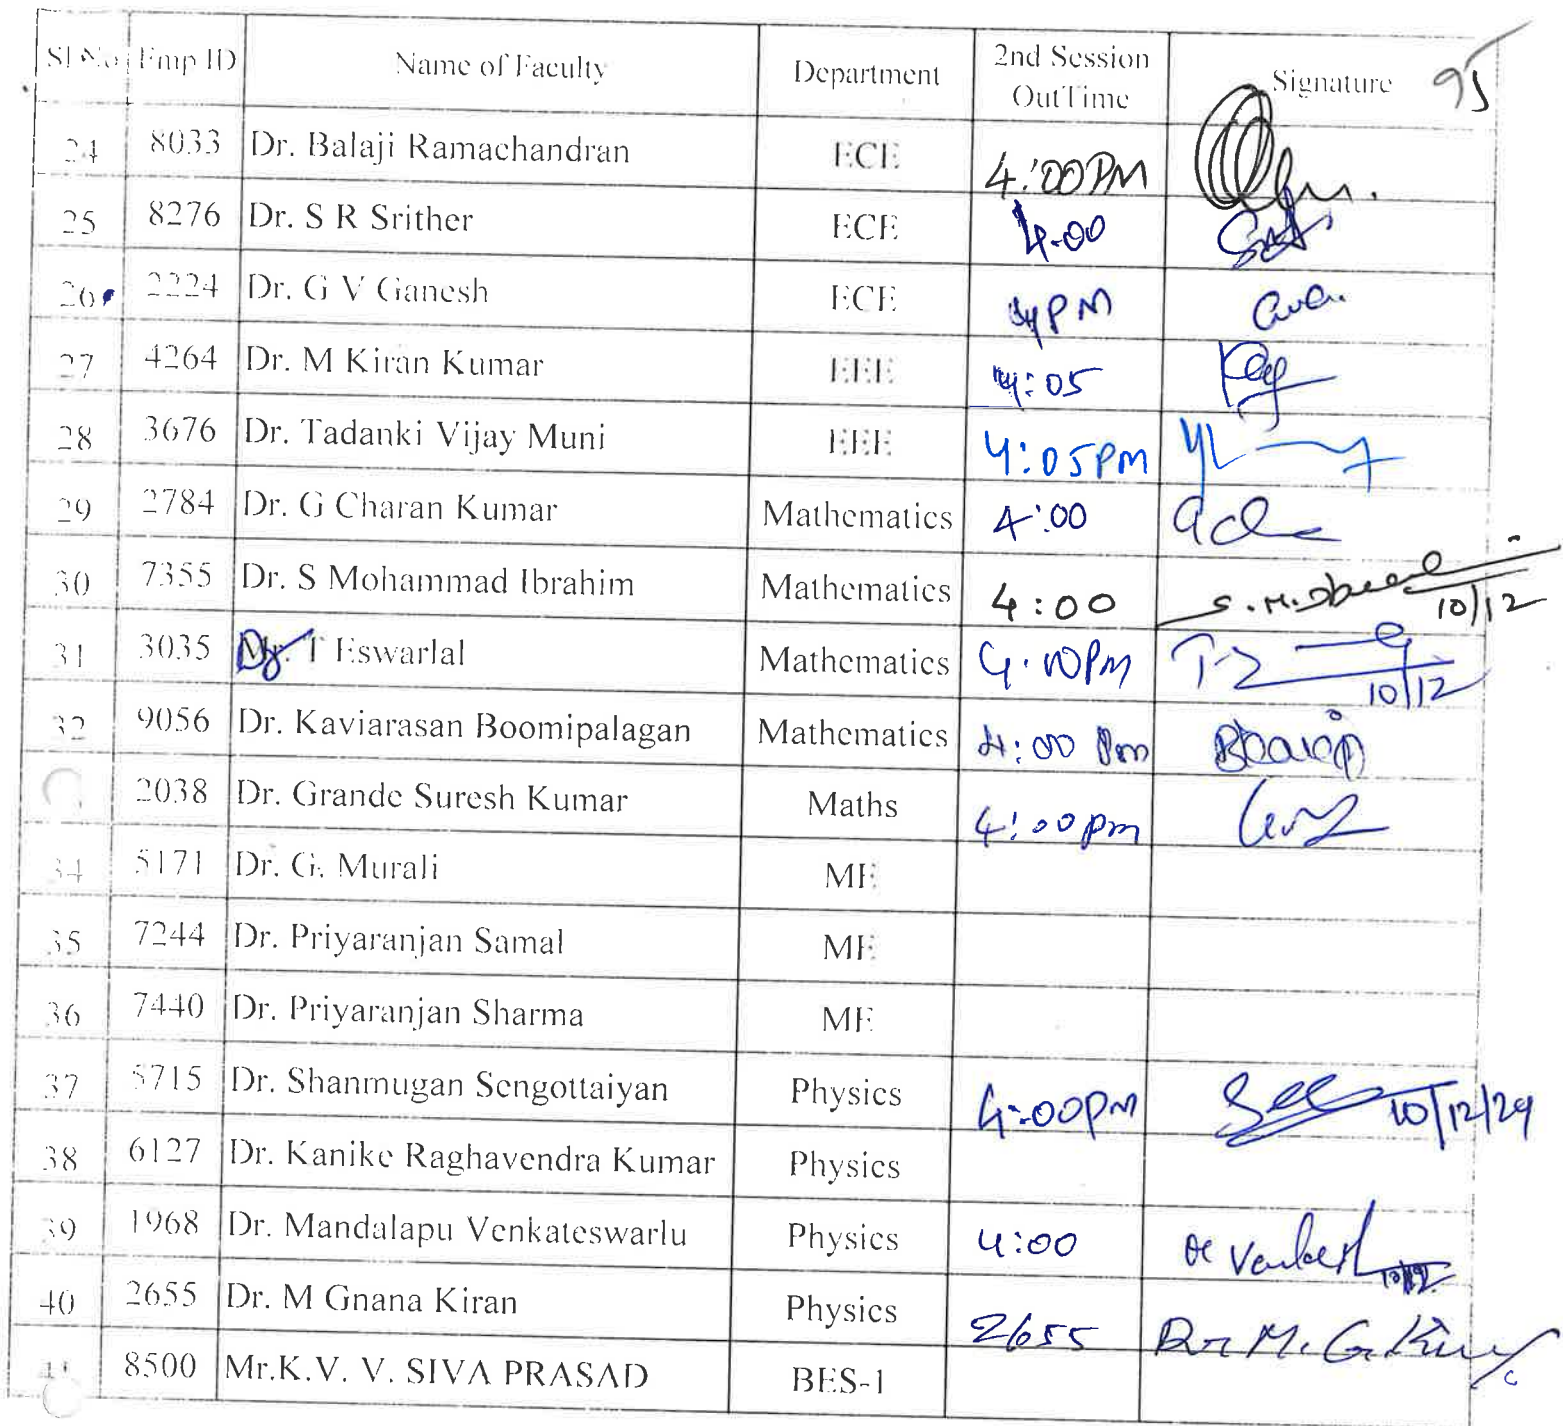 Sl No Emp ID Name of Faculty Department 2nd Session OutTime Signature 95
24 8033 Dr. Balaji Ramachandran ECE 4:00PM
25 8276 Dr. S R Srither ECE 4.00
26 2224 Dr. G V Ganesh ECE 4PM
27 4264 Dr. M Kiran Kumar EEE 4:05
28 3676 Dr. Tadanki Vijay Muni EEE 4:05PM
29 2784 Dr. G Charan Kumar Mathematics 4:00
30 7355 Dr. S Mohammad Ibrahim Mathematics 4:00 10/12
31 3035 Dr. T Eswarlal Mathematics 4.10PM 10/12
32 9056 Dr. Kaviarasan Boomipalagan Mathematics 4:00 Pm
2038 Dr. Grande Suresh Kumar Maths 4:00pm
34 5171 Dr. G. Murali ME
35 7244 Dr. Priyaranjan Samal ME
36 7440 Dr. Priyaranjan Sharma ME
37 5715 Dr. Shanmugan Sengottaiyan Physics 4:00PM 10/12/24
38 6127 Dr. Kanike Raghavendra Kumar Physics
39 1968 Dr. Mandalapu Venkateswarlu Physics 4:00
40 2655 Dr. M Gnana Kiran Physics 2655 Dr M. G. Kiran
41 8500 Mr.K.V. V. SIVA PRASAD BES-1